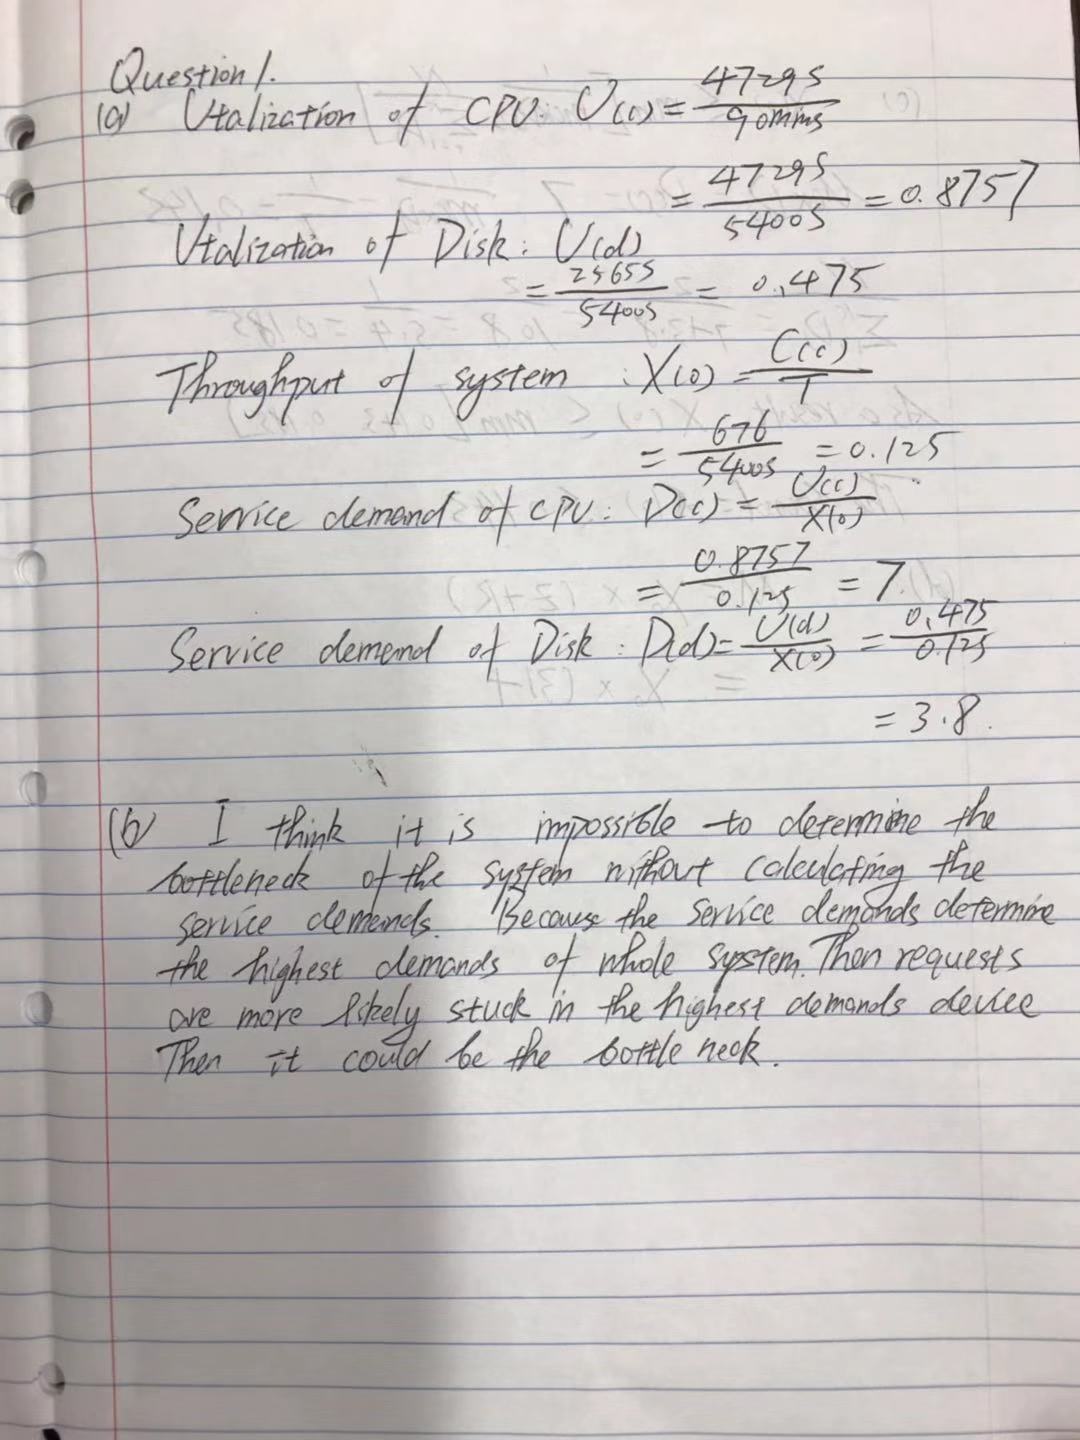 Question 1.
(a) Utalization of CPU. U(c) = 4729s / 90mins
= 4729s / 5400s = 0.8757
Utalization of Disk : U(d)
= 2565s / 5400s = 0.475
Throughput of system : X(0) = C(c) / T
= 676 / 5400s = 0.125
Service demand of CPU : D(c) = U(c) / X(0)
= 0.8757 / 0.125 = 7.
Service demend of Disk : D(d) = U(d) / X(0) = 0.475 / 0.125
= 3.8.
(b) I think it is impossible to determine the
bottleneck of the system without calculating the
service demends. Because the service demands determine
the highest demands of whole system. Then requests
are more likely stuck in the highest demands device
Then it could be the bottle neck.